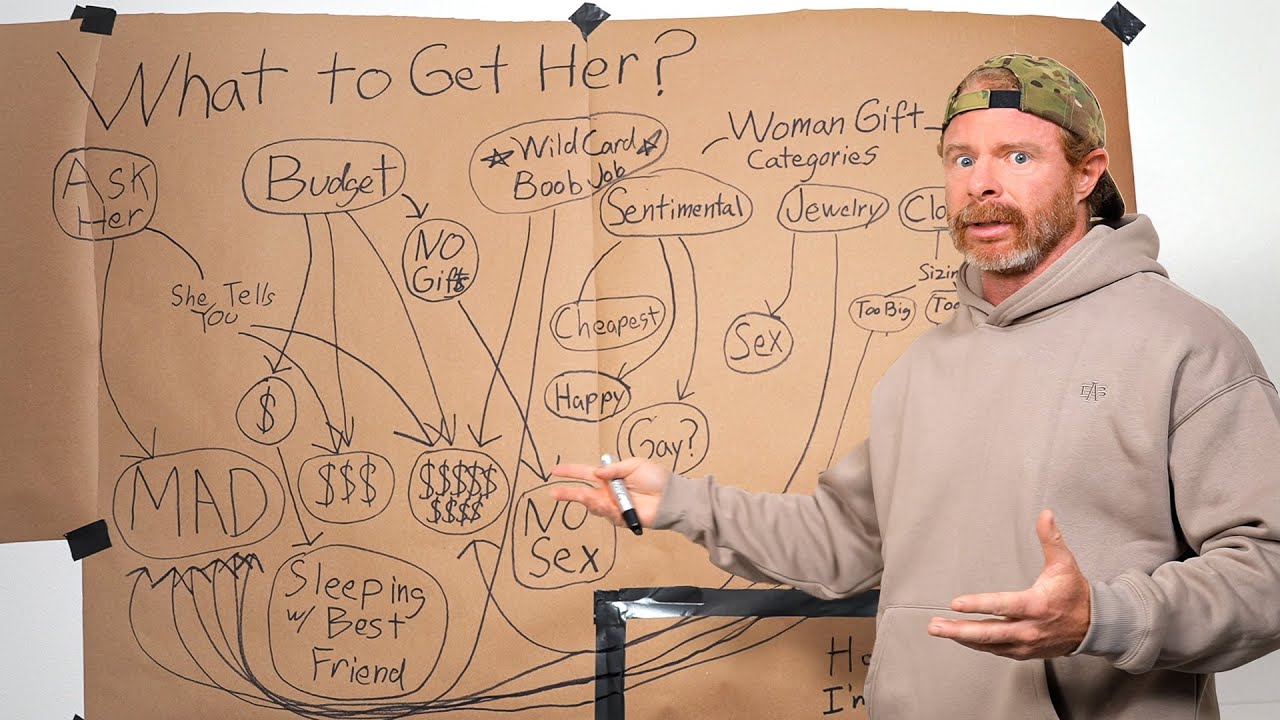 What to Get Her?
Ask
Her
Budget
☆ Wild Card ☆
Boob Job
Woman Gift
Categories
NO
Gift
Sentimental
Jewelry
Clo
She Tells
You
Sizin
Too Big
Too
Cheapest
Sex
Happy
$
Gay?
MAD
$$$
$$$$$
$$$$
NO
Sex
Sleeping
w/ Best
Friend
Ho
I'n